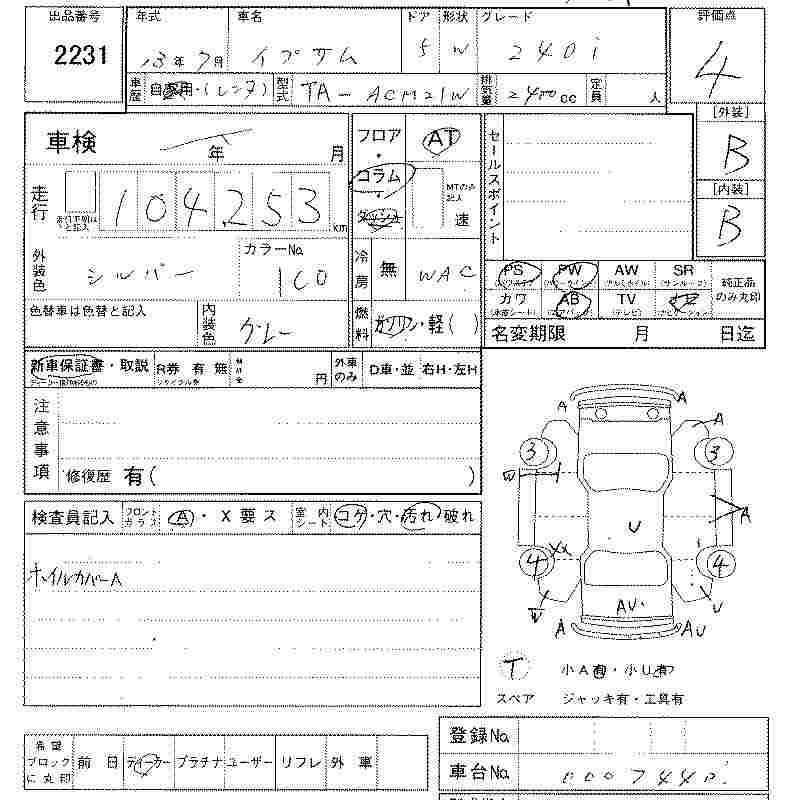 出品番号 年式 車名 ドア 形状 グレード 評価点
2231 13年 7月 イプサム 5 W 240i 4
車歴 自家用・(レンタ) 型式 TA-ACM21W 排気量 2400cc 定員 人
[外装]
B
[内装]
B
車検 年 月
フロア・コラム・ダッシュ AT
MTのみ記入 速
セールスポイント
走行 104,253 km
走行不明は*と記入
外装色 シルバー カラーNo. 1C0
冷房 無 WAC
色替車は色替と記入 内装色 グレー
燃料 ガソリン・軽( )
PS (パワステ) PW (パワーウインド) AW (アルミホイル) SR (サンルーフ) 純正品のみ丸印
カワ (本革シート) AB (エアバック) TV (テレビ) ナビ (ナビゲーション)
名変期限 月 日迄
新車保証書・取説 R券 有 無 リサイクル券 円 外車のみ D車・並 右H・左H
注意事項
修復歴 有( )
検査員記入 フロントガラス A・X要ス 室内シート コゲ・穴・汚れ・破れ
ホイルカバーA
A A
A
3 3
W
A
U
4 XX 4
W AU U
A AU
T 小A有・小U有
スペア ジャッキ有・工具有
希望ブロックに丸印 前日 ディーラー プラチナ ユーザー リフレ 外車
登録No.
車台No. 0007440